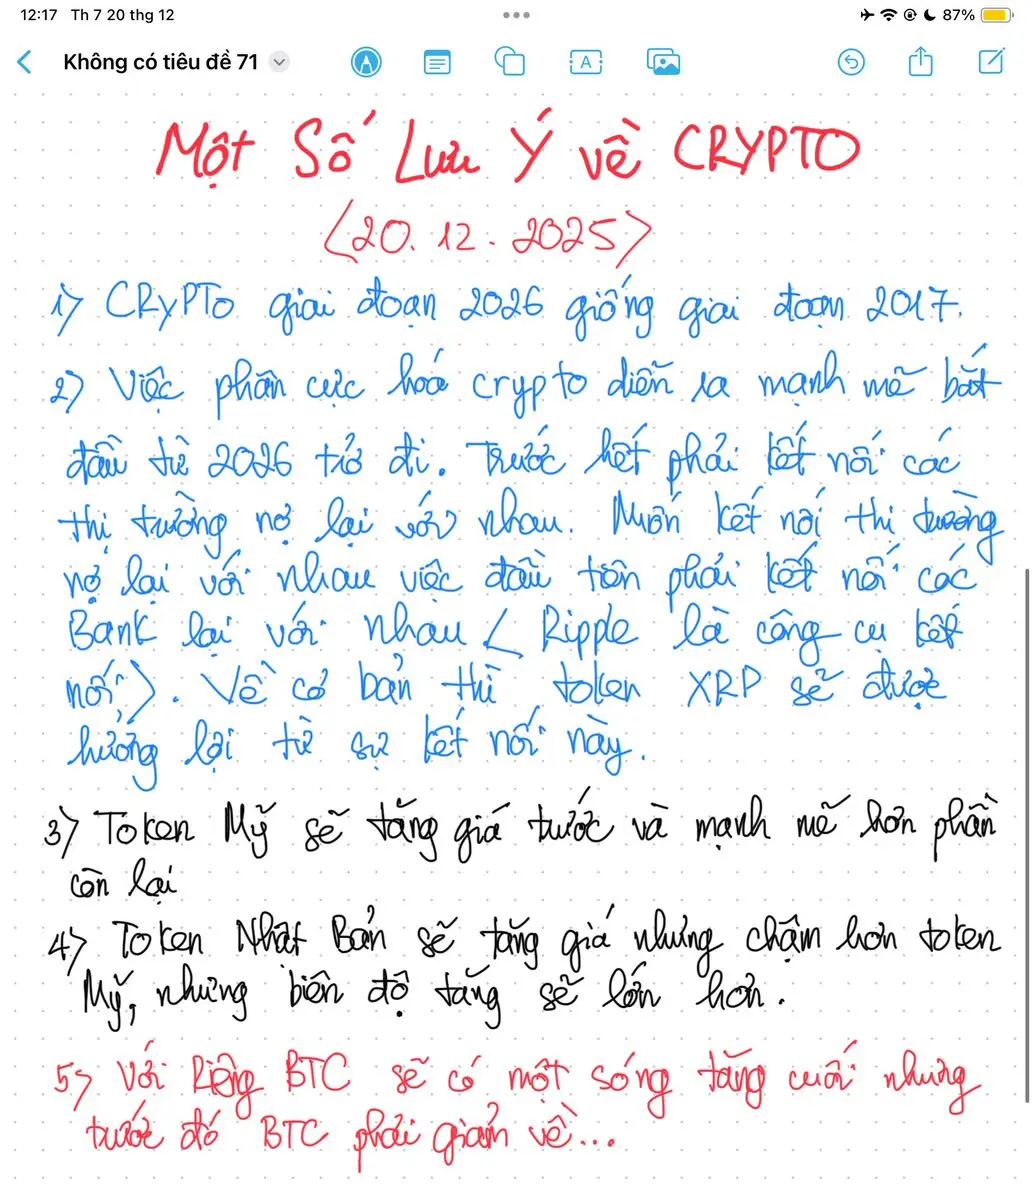 12:17 Th 7 20 thg 12 87%
Không có tiêu đề 71
A
Một Số Lưu Ý về CRYPTO
<20.12.2025>
1) CRYPTO giai đoạn 2026 giống giai đoạn 2017.
2) Việc phân cực hoá crypto diễn ra mạnh mẽ bắt
đầu từ 2026 trở đi. Trước hết phải kết nối các
thị trường nợ lại với nhau. Muốn kết nối thị trường
nợ lại với nhau việc đầu tiên phải kết nối các
Bank lại với nhau < Ripple là công cụ kết
nối >. Về cơ bản thì token XRP sẽ được
hưởng lợi từ sự kết nối này.
3) Token Mỹ sẽ tăng giá trước và mạnh mẽ hơn phần
còn lại
4) Token Nhật Bản sẽ tăng giá nhưng chậm hơn token
Mỹ, nhưng biên độ tăng sẽ lớn hơn.
5) Với Riêng BTC sẽ có một sóng tăng cuối nhưng
trước đó BTC phải giảm về...